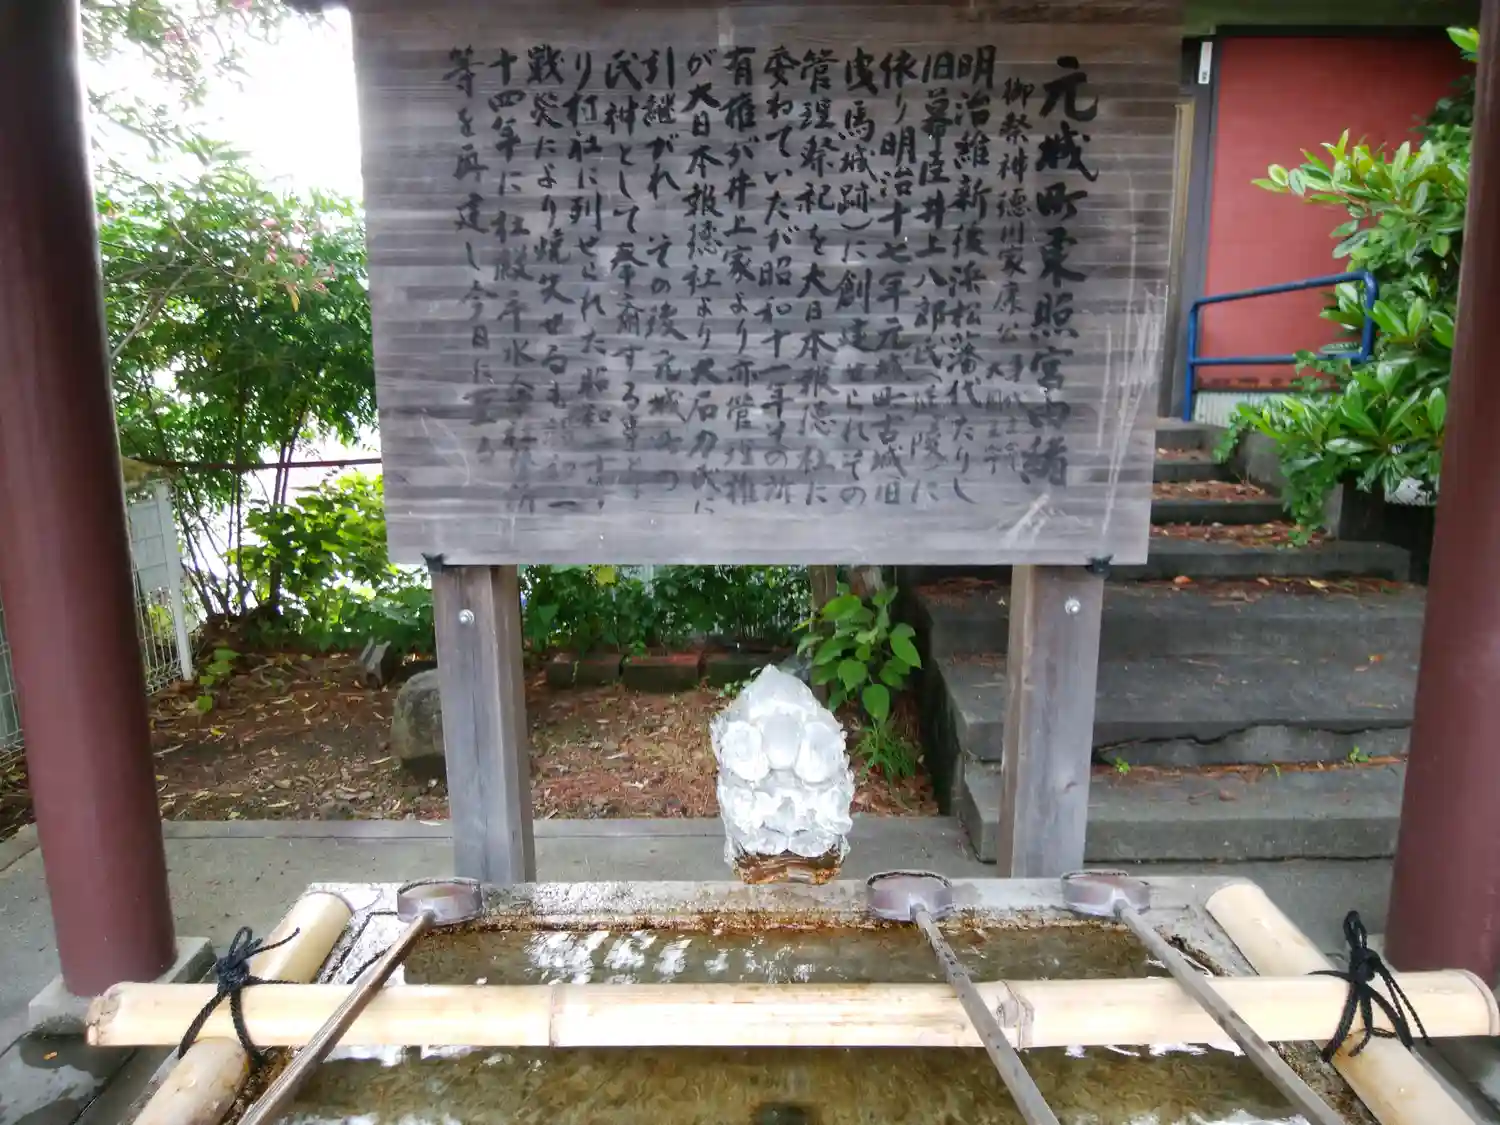 元城町東照宮由緒
御祭神徳川家康公
明治維新後浜松藩代たりし
旧幕臣井上八郎氏(延陵)に
依り明治十七年元城町古城旧
曳馬城跡)に創建せられその
管理祭祀を大日本報徳社に
委ねていたが昭和十一年その所
有権が井上家より亦管理権
が大日本報徳社より大石力氏に
引継がれ その後元城町の
氏神として奉斎する事と
り村社に列せられた昭和二十
戦災により焼失せるも昭和
十四年に社殿手水舎
等を再建し今日に至る